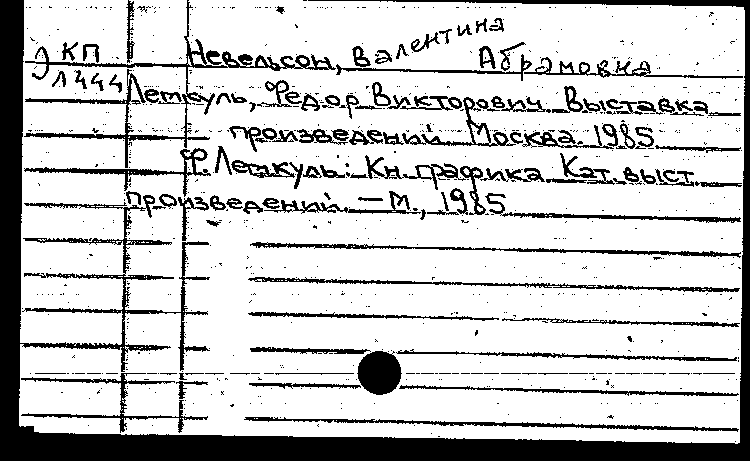 Э КП Невельсон, Валентина Абрамовна
Л444
Лемкуль, Федор Викторович. Выставка
произведений. Москва. 1985
Ф. Лемкуль: Кн. графика. Кат. выст.
произведений. — М., 1985